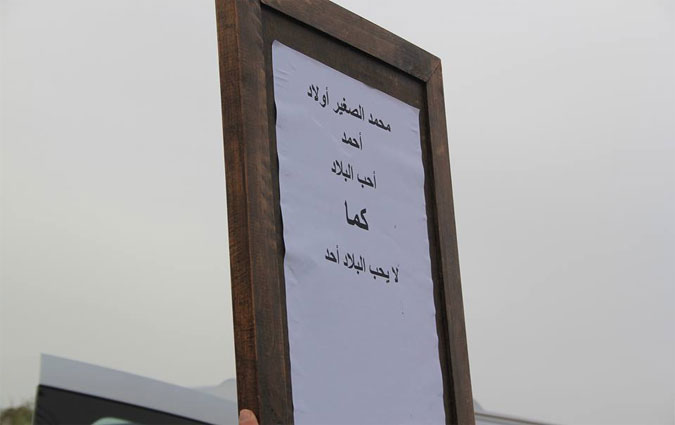 محمد الصغير أولاد
أحمد
أحب البلاد
كما
لا يحب البلاد أحد